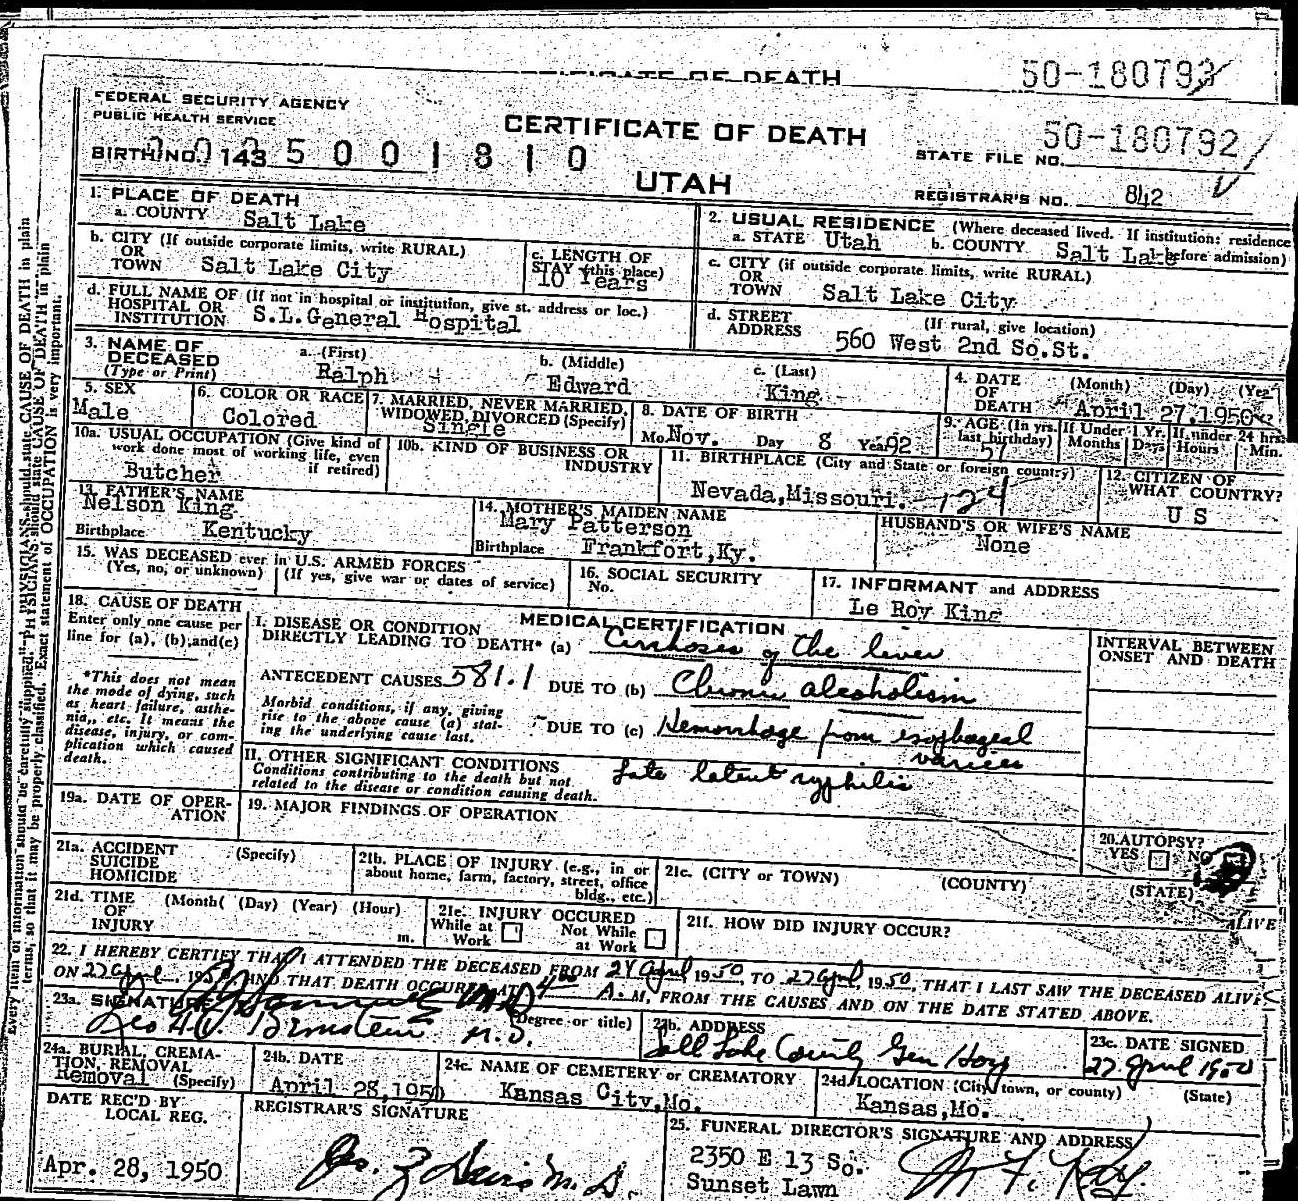 OF DEATH
50-180793
FEDERAL SECURITY AGENCY
PUBLIC HEALTH SERVICE
CERTIFICATE OF DEATH
50-180792
STATE FILE NO.
BIRTH NO. 143 5 0 0 1 8 1 0
UTAH
REGISTRAR'S NO. 842
1. PLACE OF DEATH
a. COUNTY Salt Lake
2. USUAL RESIDENCE (Where deceased lived. If institution: residence before admission)
a. STATE Utah b. COUNTY Salt Lake
b. CITY (If outside corporate limits, write RURAL)
OR
TOWN Salt Lake City
c. LENGTH OF
STAY (this place)
10 Years
c. CITY (if outside corporate limits, write RURAL)
OR
TOWN Salt Lake City
d. FULL NAME OF (If not in hospital or institution, give st. address or loc.)
HOSPITAL OR
INSTITUTION S.L.General Hospital
d. STREET (If rural, give location)
ADDRESS 560 West 2nd So.St.
3. NAME OF
DECEASED
(Type or Print)
a. (First) Ralph
b. (Middle) Edward
c. (Last) King
4. DATE
OF
DEATH
(Month) (Day) (Year)
April 27,1950
5. SEX
Male
6. COLOR OR RACE
Colored
7. MARRIED, NEVER MARRIED,
WIDOWED, DIVORCED (Specify)
Single
8. DATE OF BIRTH
Mo. Nov. Day 8 Year 92
9. AGE (In yrs.
last birthday)
57
If Under 1 Yr.
Months Days
If under 24 hrs.
Hours Min.
10a. USUAL OCCUPATION (Give kind of
work done most of working life, even
if retired)
Butcher
10b. KIND OF BUSINESS OR
INDUSTRY
11. BIRTHPLACE (City and State or foreign country)
Nevada,Missouri. 124
12. CITIZEN OF
WHAT COUNTRY?
U S
13. FATHER'S NAME
Nelson King
Birthplace Kentucky
14. MOTHER'S MAIDEN NAME
Mary Patterson
Birthplace Frankfort,Ky.
HUSBAND'S OR WIFE'S NAME
None
15. WAS DECEASED ever in U.S. ARMED FORCES
(Yes, no, or unknown) (If yes, give war or dates of service)
16. SOCIAL SECURITY
No.
17. INFORMANT and ADDRESS
Le Roy King
18. CAUSE OF DEATH
Enter only one cause per
line for (a), (b), and (c)
*This does not mean
the mode of dying, such
as heart failure, asthe-
nia, etc. It means the
disease, injury, or com-
plication which caused
death.
MEDICAL CERTIFICATION
I. DISEASE OR CONDITION
DIRECTLY LEADING TO DEATH* (a) Cirrhosis of the liver
ANTECEDENT CAUSES 581.1 DUE TO (b) Chronic alcoholism
Morbid conditions, if any, giving
rise to the above cause (a) stat-
ing the underlying cause last.
DUE TO (c) Hemorrhage from esophageal
varices
II. OTHER SIGNIFICANT CONDITIONS
Conditions contributing to the death but not
related to the disease or condition causing death.
Late latent syphilis
INTERVAL BETWEEN
ONSET AND DEATH
19a. DATE OF OPER-
ATION
19. MAJOR FINDINGS OF OPERATION
20. AUTOPSY?
YES NO
21a. ACCIDENT
SUICIDE
HOMICIDE
(Specify)
21b. PLACE OF INJURY (e.g., in or
about home, farm, factory, street, office
bldg., etc.)
21c. (CITY or TOWN) (COUNTY) (STATE)
21d. TIME
OF
INJURY
(Month( (Day) (Year) (Hour)
m.
21e. INJURY OCCURED
While at
Work
Not While
at Work
21f. HOW DID INJURY OCCUR?
ALIVE
22. I HEREBY CERTIFY THAT I ATTENDED THE DECEASED FROM 24 April 1950, TO 27 April, 1950, THAT I LAST SAW THE DECEASED ALIVE
ON 27 April 1950 AND THAT DEATH OCCURRED AT 4:00 A. M, FROM THE CAUSES AND ON THE DATE STATED ABOVE.
23a. SIGNATURE (Degree or title)
M.D.
23b. ADDRESS
Salt Lake County Gen Hosp
23c. DATE SIGNED
27 April 1950
24a. BURIAL, CREMA-
TION, REMOVAL
Removal (Specify)
24b. DATE
April 28,1950
24c. NAME OF CEMETERY or CREMATORY
Kansas City,Mo.
24d. LOCATION (City, town, or county) (State)
Kansas,Mo.
DATE REC'D BY
LOCAL REG.
Apr. 28, 1950
REGISTRAR'S SIGNATURE
M.D.
25. FUNERAL DIRECTOR'S SIGNATURE AND ADDRESS
2350 E 13 So.
Sunset Lawn